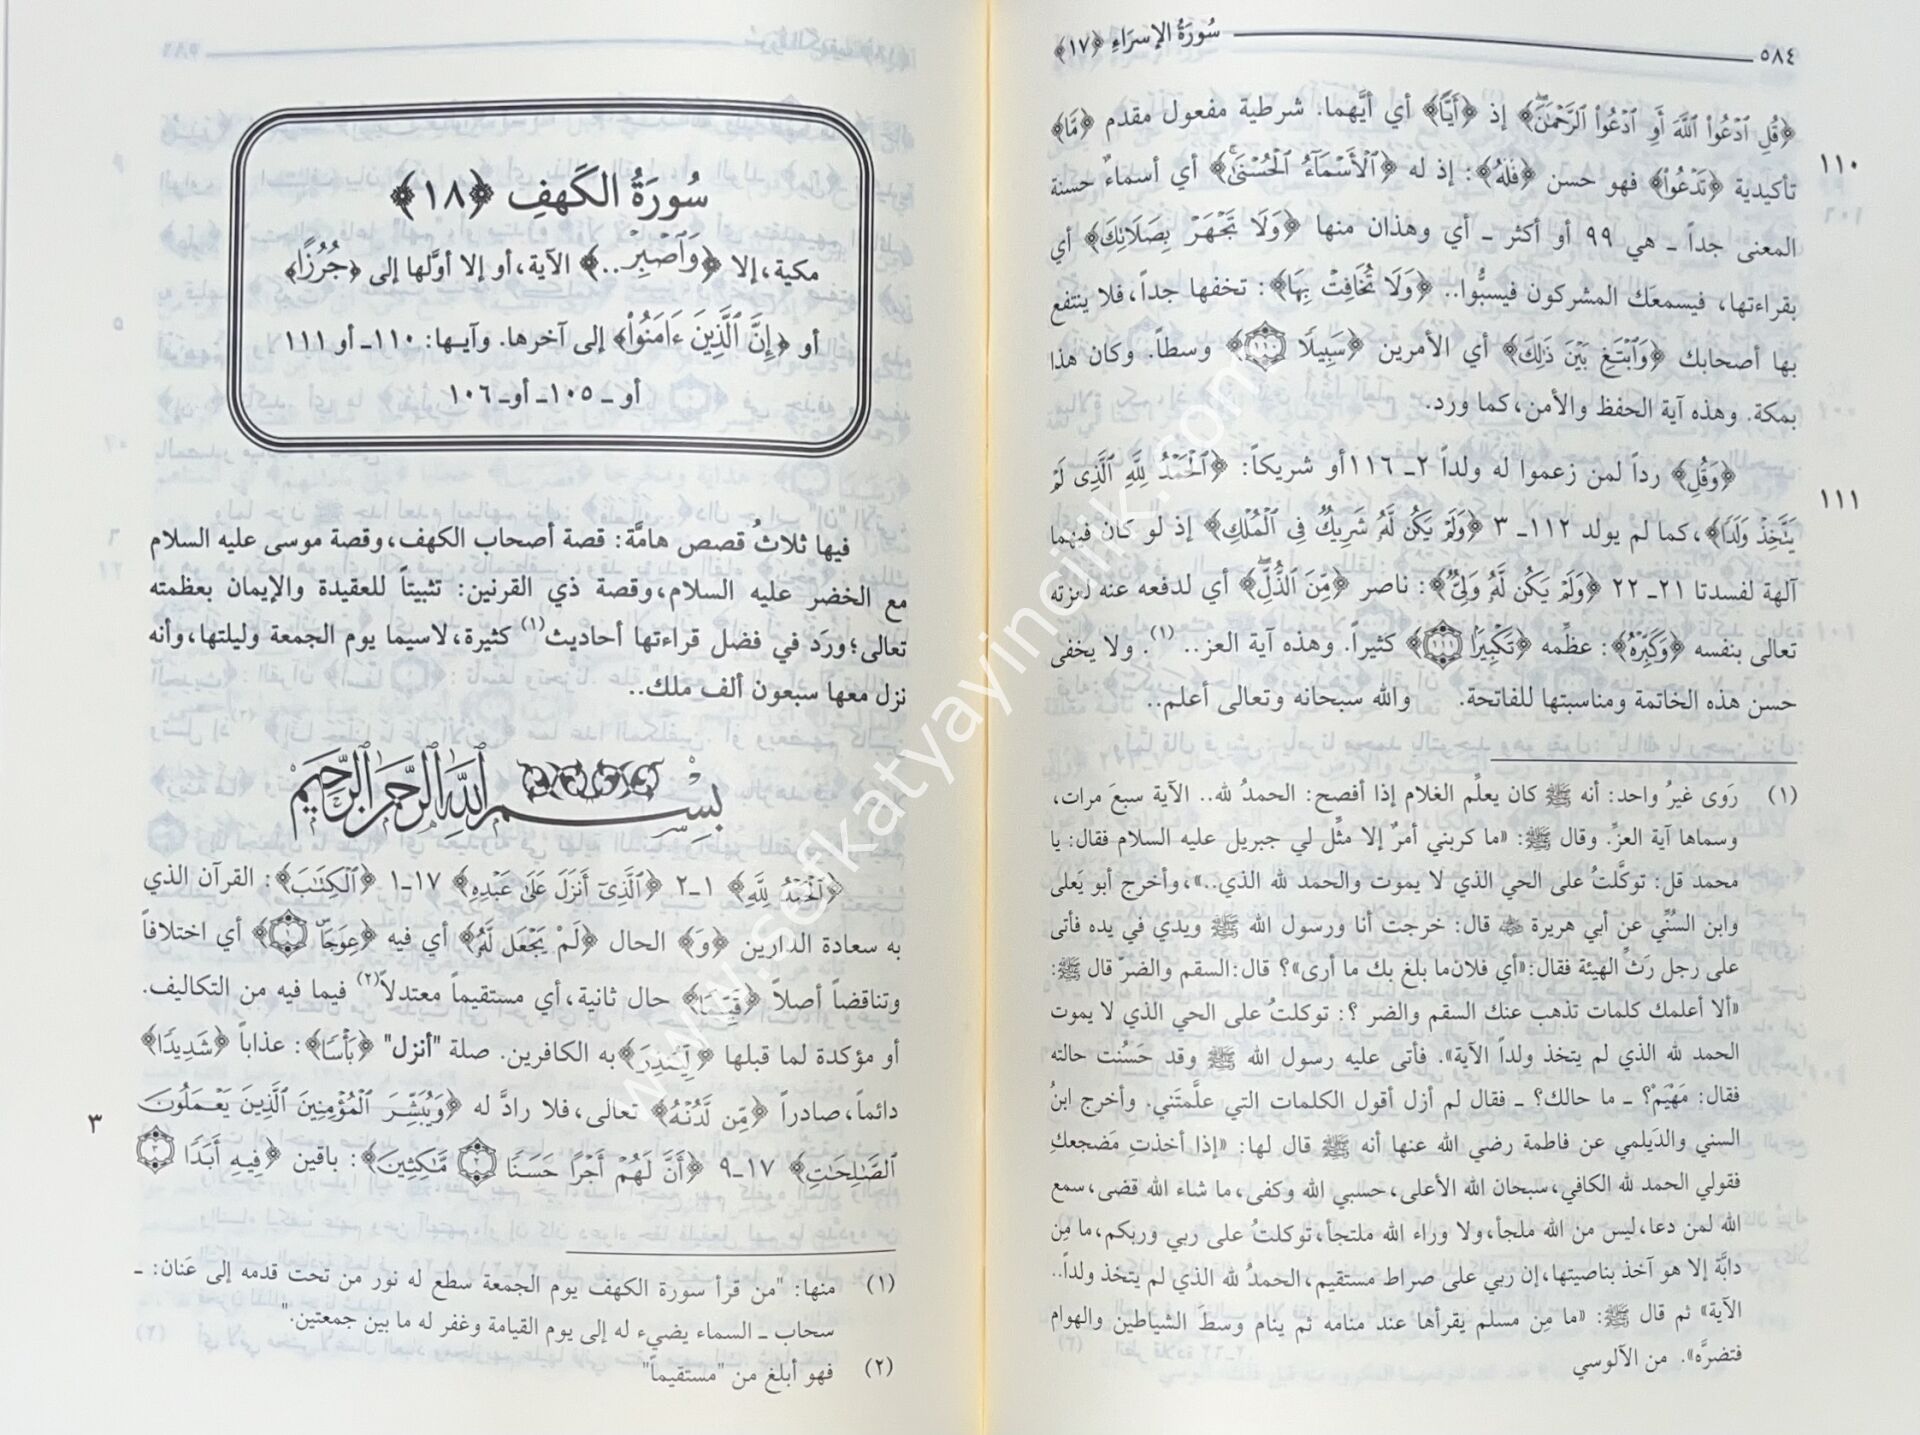 ٥٨٤ سُورَةُ الإسرَاءِ ﴿١٧﴾
﴿قُلِ ٱدۡعُواْ ٱللَّهَ أَوِ ٱدۡعُواْ ٱلرَّحۡمَٰنَۖ﴾ إذ ﴿أَيّٗا﴾ أي أيَّهما. شرطية مفعول مقدم ﴿مَّا﴾
١١٠
تأكيدية ﴿تَدۡعُواْ﴾ فهو حسن ﴿فَلَهُ﴾: إذ له ﴿ٱلۡأَسۡمَآءُ ٱلۡحُسۡنَىٰۚ﴾ أي أسماءٌ حسنة
المعنى جداً ـ هي ٩٩ أو أكثر ـ أي وهذان منها ﴿وَلَا تَجۡهَرۡ بِصَلَاتِكَ﴾ أي
بقراءتها، فيسمعَك المشركون فيسبُّوا.. ﴿وَلَا تُخَافِتۡ بِهَا﴾: تخفها جداً، فلا ينتفع
بها أصحابك ﴿وَٱبۡتَغِ بَيۡنَ ذَٰلِكَ﴾ أي الأمرين ﴿سَبِيلٗا ١١٠﴾ وسطاً. وكان هذا
بمكة. وهذه آية الحفظ والأمن، كما ورد.
﴿وَقُلِ﴾ رداً لمن زعموا له ولداً ٢ـ ١١٦ أو شريكاً: ﴿ٱلۡحَمۡدُ لِلَّهِ ٱلَّذِي لَمۡ
١١١
يَتَّخِذۡ وَلَدٗا﴾، كما لم يولد ١١٢ـ ٣ ﴿وَلَمۡ يَكُن لَّهُۥ شَرِيكٞ فِي ٱلۡمُلۡكِ﴾ إذ لو كان فيهما
آلهة لفسدتا ٢١ـ ٢٢ ﴿وَلَمۡ يَكُن لَّهُۥ وَلِيّٞ﴾: ناصر ﴿مِّنَ ٱلذُّلِّۖ﴾ أي لدفعه عنه لعزته
تعالى بنفسه ﴿وَكَبِّرۡهُ﴾: عظِّمه ﴿تَكۡبِيرَۢا ١١١﴾ كثيراً. وهذه آية العز.. (١). ولا يخفى
حسن هذه الخاتمة ومناسبتها للفاتحة. والله سبحانه وتعالى أعلم..
(١) رَوى غيرُ واحد: أنه ﷺ كان يعلِّم الغلام إذا أفصح: الحمدُ لله.. الآية سبعَ مرات،
وسماها آية العزِّ. وقال ﷺ: «ما كربني أمرٌ إلا مثِّل لي جبريل عليه السلام فقال: يا
محمدَ قل: توكَّلتُ على الحي الذي لا يموت والحمد لله الذي..»، وأخرج أبو يَعلى
وابن السُنِّي عن أبي هريرة ﵁ قال: خرجت أنا ورسول الله ﷺ ويدي في يده فأتى
على رجل رَثِّ الهيئة فقال: «أي فلان ما بلغ بك ما أرى»؟ قال: السقم والضرّ قال ﷺ:
«ألا أعلمك كلمات تذهب عنك السقم والضر ؟: توكلتُ على الحي الذي لا يموت
الحمد لله الذي لم يتخذ ولداً الآية». فأتى عليه رسول الله ﷺ وقد حَسُنت حالته
فقال: مَهْيَمْ؟ ـ ما حالك؟ ـ فقال لم أزل أقول الكلمات التي علَّمتَني. وأخرج ابنُ
السني والدَيلمي عن فاطمة رضي الله عنها أنه ﷺ قال لها: «إذا أخذتِ مَضجعكِ
فقولي الحمد لله الكافي، سبحان الله الأعلى، حسبي الله وكفى، ما شاء الله قضى، سمع
الله لمن دعا، ليس من الله ملجأ، ولا وراء الله ملتجأ، توكلتُ على ربي وربكم، ما مِن
دابَّة إلا هو آخذ بناصيتها، إن ربي على صراط مستقيم، الحمدُ لله الذي لم يتخذ ولداً..
الآية» ثم قال ﷺ: «ما مِن مسلم يقرأها عند منامه ثم ينام وسطَ الشياطين والهوام
فتضرَّه». من الآلوسي
سُورَةُ الكَهفِ ﴿١٨﴾
مكية، إلا ﴿وَٱصۡبِرۡ..﴾ الآية، أو إلا أوَّلها إلى ﴿جُرُزًا﴾
أو ﴿إِنَّ ٱلَّذِينَ ءَامَنُواْ﴾ إلى آخرها. وآيـها: ١١٠ـ أو ١١١
أو ـ ١٠٥ـ أو ـ ١٠٦
فيها ثلاثُ قصص هامَّة: قصة أصحاب الكهف، وقصة موسى عليه السلام
مع الخضر عليه السلام، وقصة ذي القرنين: تثبيتاً للعقيدة والإيمان بعظمته
تعالى؛ ورَد في فضل قراءتها أحاديث(١) كثيرة، لاسيما يوم الجمعة وليلتها، وأنه
نزل معها سبعون ألف ملك..
بِسۡمِ ٱللَّهِ ٱلرَّحۡمَٰنِ ٱلرَّحِيمِ
﴿ٱلۡحَمۡدُ لِلَّهِ﴾ ١ـ٢ ﴿ٱلَّذِيٓ أَنزَلَ عَلَىٰ عَبۡدِهِ﴾ ١٧ـ١ ﴿ٱلۡكِتَٰبَ﴾: القرآن الذي
به سعادة الدارين ﴿وَ﴾ الحال ﴿لَمۡ يَجۡعَل لَّهُۥ﴾ أي فيه ﴿عِوَجَاۜ ١﴾ أي اختلافاً
وتناقضاً أصلاً ﴿قَيِّمٗا﴾ حال ثانية، أي مستقيماً معتدلاً(٢) فيما فيه من التكاليف.
أو مؤكدة لما قبلها ﴿لِّيُنذِرَ﴾ به الكافرين. صلة "أنزل" ﴿بَأۡسٗا﴾: عذاباً ﴿شَدِيدٗا﴾
دائماً، صادراً ﴿مِّن لَّدُنۡهُ﴾ تعالى، فلا رادَّ له ﴿وَيُبَشِّرَ ٱلۡمُؤۡمِنِينَ ٱلَّذِينَ يَعۡمَلُونَ
٣
ٱلصَّٰلِحَٰتِ﴾ ١٧ـ٩ ﴿أَنَّ لَهُمۡ أَجۡرًا حَسَنٗا ٢ مَّٰكِثِينَ﴾: باقين ﴿فِيهِ أَبَدٗا ٣﴾
(١) منها: "من قرأ سورة الكهف يوم الجمعة سطع له نور من تحت قدمه إلى عَنان: ـ
سحاب ـ السماء يضيء له إلى يوم القيامة وغفر له ما بين جمعتين."
(٢) فهو أبلغ من "مستقيماً"
www.sefkatyayincilik.com